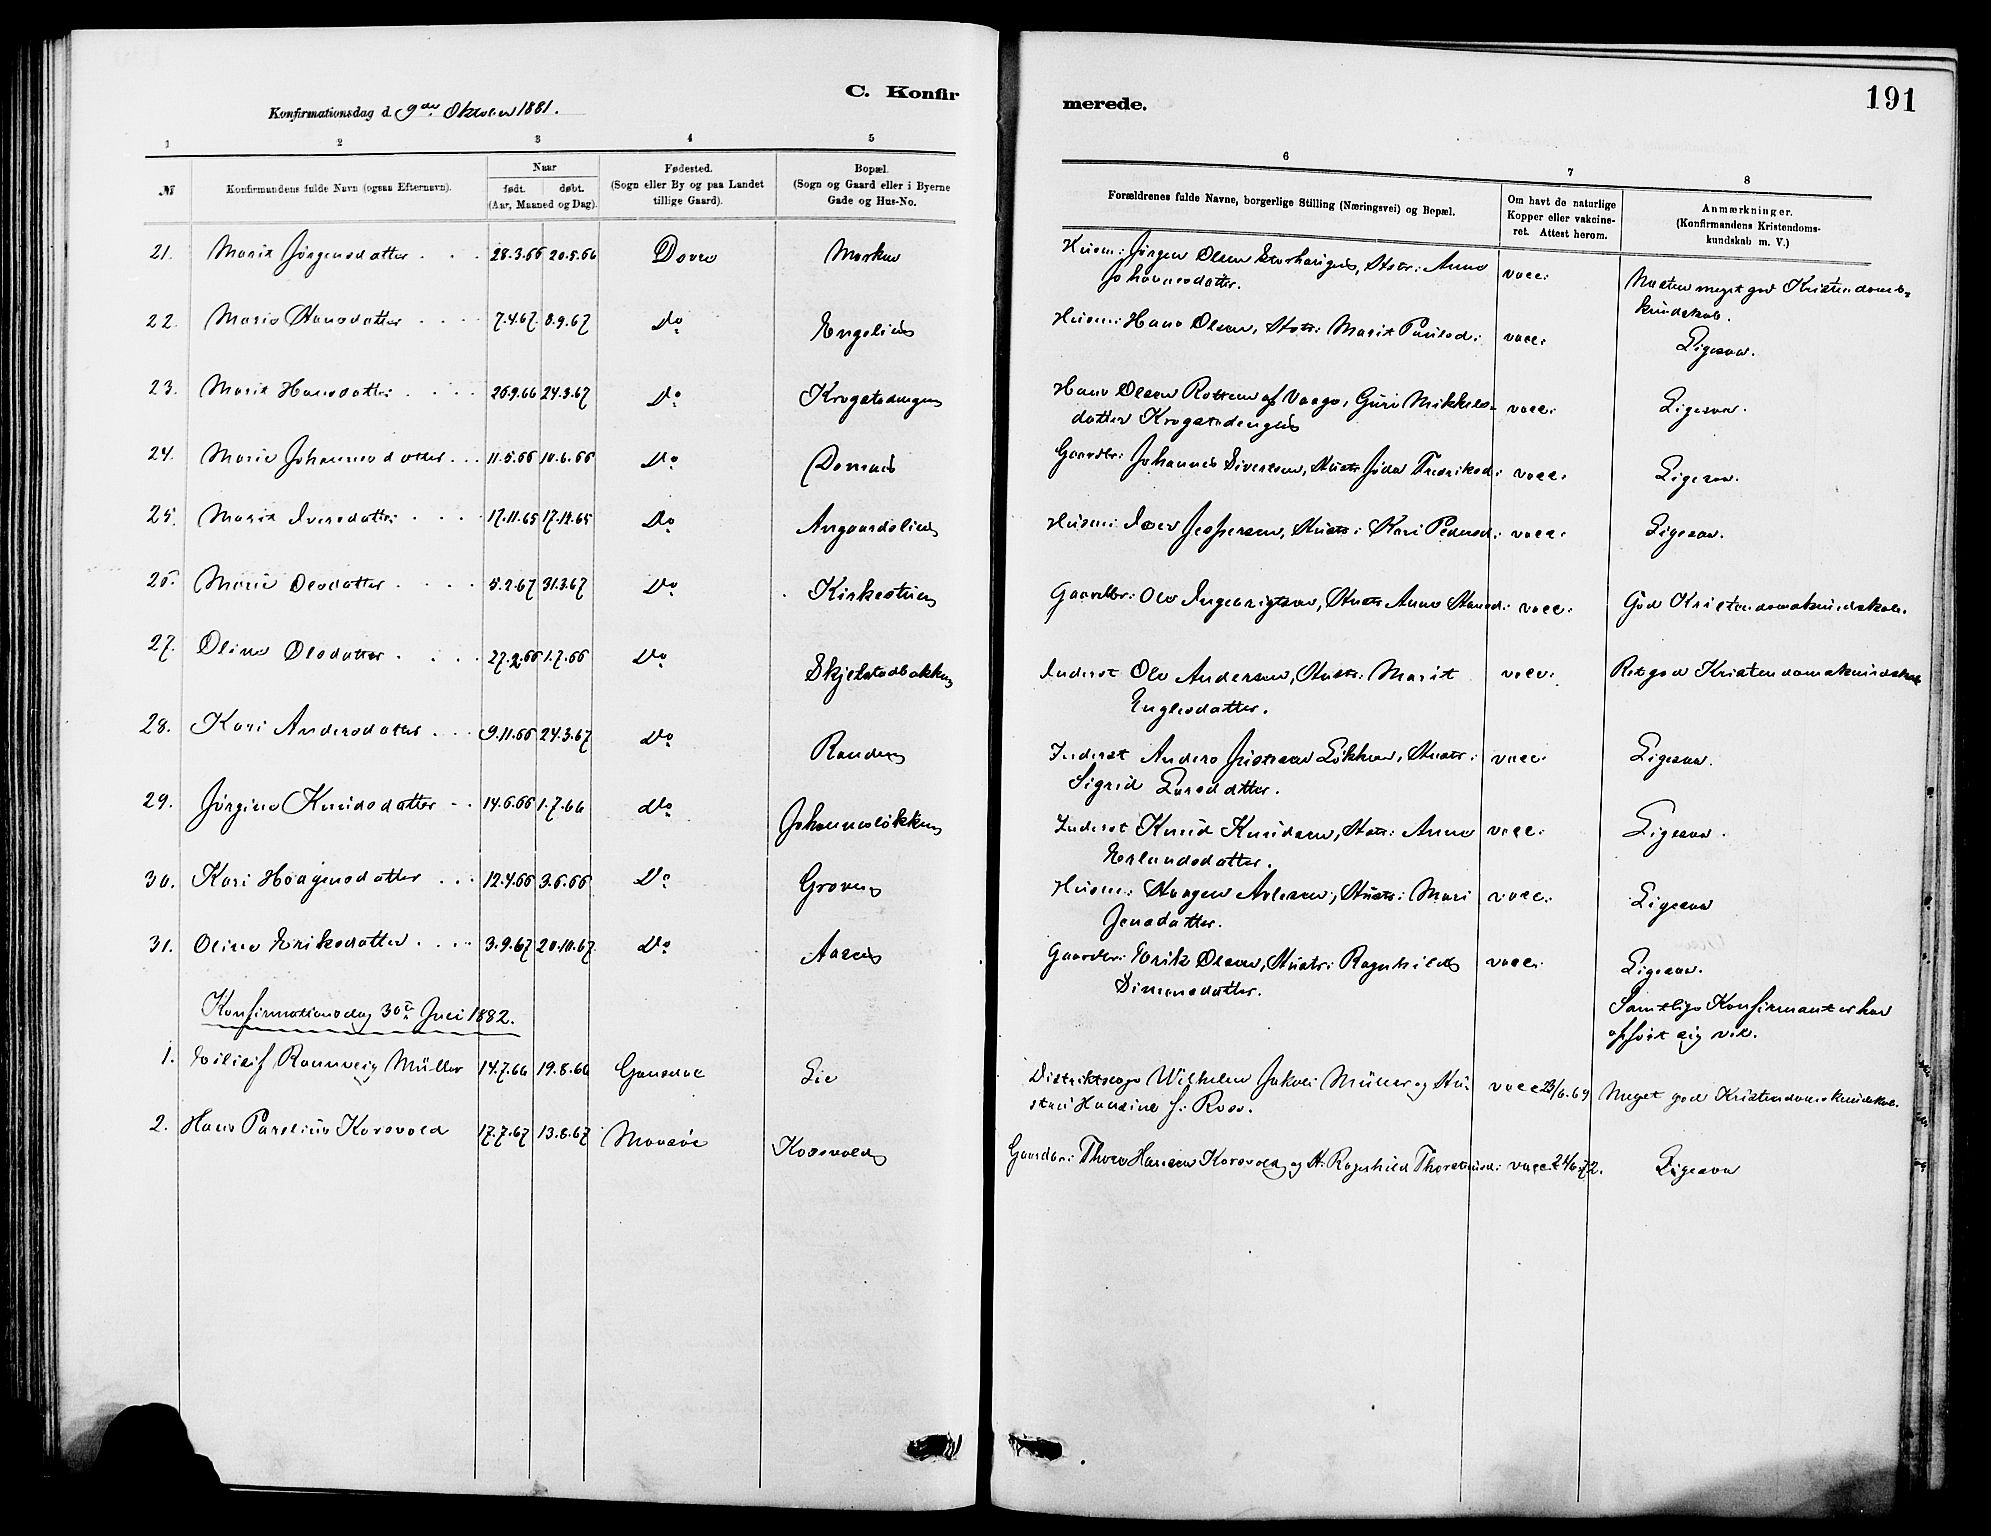 C. Konfir
merede.
191
Konfirmationsdag d. 9de Oktober 1881.
1 2 3 4 5 6 7 8
№
Konfirmandens fulde Navn (ogsaa Efternavn).
Naar
født. døbt.
(Aar, Maaned og Dag).
Fødested.
(Sogn eller By og paa Landet
tillige Gaard).
Bopæl.
(Sogn og Gaard eller i Byerne
Gade og Hus-No.
Forældrenes fulde Navne, borgerlige Stilling (Næringsvei) og Bopæl.
Om havt de naturlige
Kopper eller vakcine-
ret. Attest herom.
Anmærkninger.
(Konfirmandens Kristendoms-
kundskab m. V.)
21. Marit Jørgensdatter 28.3.66 20.5.66 Dovre Husm: Jørgen Olsen Storhaugen, Hstr: Anne vacc: Næsten meget god Kristendoms-
Johannesdatter. kundskab.
22. Marie Hansdatter 7.4.67 8.9.67 Do Englien Husm: Hans Olsen, Hstr: Marit Paulsd: vacc: Ligesaa.
23. Marit Hansdatter 26.9.66 24.3.67 Do Krogstadengen Hans Olsen af Vaage, Guri Mikkels- vacc: Ligesaa.
datter Krogstadengen
24. Marie Johannesdatter 11.5.66 10.6.66 Do Gaardbr: Johannes Sivertsen, Hustr: Fredriksd: vacc: Ligesaa.
25. Marit Iversdatter 17.11.65 17.12.65 Do Angaardslien Husm: Iver Jespersen, Hustr: Kari Pedersd: vacc: Ligesaa.
26. Marie Olsdatter 5.2.67 31.3.67 Do Kirkestuen Gaardbr: Ole Ingebrigtsen, Hustr: Anne Hansd: vacc: God Kristendomskundskab.
27. Oline Olsdatter 27.2.66 1.7.66 Do Skjelstadbakken Inderst Ole Andersen, Hustr: Marit vacc: Ret god Kristendomskundskab
Englesdatter.
28. Kari Andersdatter 9.11.66 24.3.67 Do Randen Inderst Anders Løkken, Hustr: vacc: Ligesaa.
Sigrid Larsdatter.
29. Jørgine Knudsdatter 14.6.66 1.7.66 do Johannesløkken Inderst Knud Knudsen, Hstr: Anne vacc: Ligesaa.
Erlandsdatter.
30. Kari Haagensdatter 12.4.66 3.6.66 Do Groven Husm: Haagen Hustr: Mari vacc: Ligesaa
Jensdatter.
31. Oline Eriksdatter 3.9.67 20.10.67. Do Aasen Gaardbr: Erik Olsen, Hustr: Ragnhild vacc: Ligesaa.
Simensdatter.
Samtlige Konfirmanter har
opført sig vel.
Konfirmationsdag 30te Juli 1882.
1. Ronnveig Müller 14.7.66 19.8.66 Gausdal Lie Distriktslæge Wilhelm Jakob Müller og Hu- vacc 23/6.69 Meget god Kristendomskundskab.
stru Hansine f: Roos.
2. Hans Parelius Korsvold 17.7.67 13.8.67 Korsvold Gaardbr: Thore Hansen Korsvold og H: Ragnhild Thorstensd: vacc 24/6.72. Ligesaa